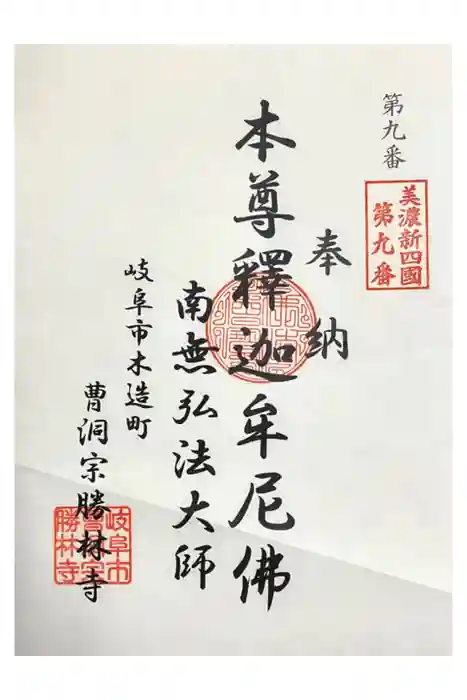 第九番
美濃新四國
第九番
奉納
本尊釋迦牟尼佛
南無弘法大師
岐阜市木造町
曹洞宗勝林寺
岐阜市
曹洞宗
勝林寺